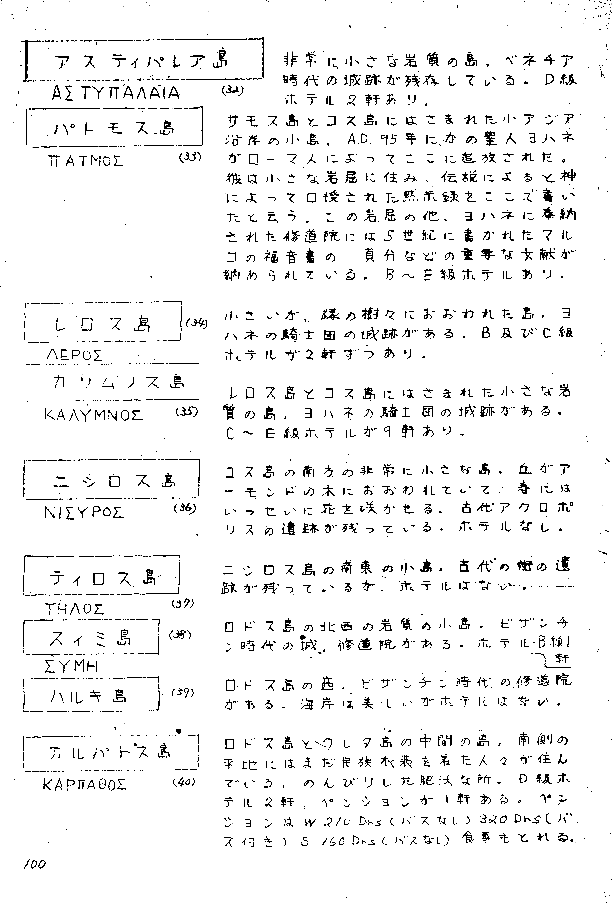 アスティパレア島
ΑΣΤΥΠΑΛΑΙΑ (32)
非常に小さな岩質の島。ベネチア
時代の城跡が残存している。D級
ホテル2軒あり。
パトモス島
ΠΑΤΜΟΣ (33)
サモス島とコス島にはさまれた小アジア
沿岸の小島。A.D.95年にかの聖人ヨハネ
がローマ人によってここに追放された。
彼は小さな岩屈に住み、伝説によると神
によって口授された黙示録をここで書い
たと云う。この岩屈の他、ヨハネに奉納
された修道院には5世紀に書かれたマル
コの福音書の 頁分などの重要な文献が
納められている。B〜E級ホテルあり。
レロス島 (34)
ΛΕΡΟΣ
小さいが、緑の樹々におおわれた島。ヨ
ハネの騎士団の城跡がある。B及びC級
ホテルが2軒ずつあり。
カリムノス島
ΚΑΛΥΜΝΟΣ (35)
レロス島とコス島にはさまれた小さな岩
質の島。ヨハネの騎士団の城跡がある。
C〜E級ホテルが9軒あり。
ニシロス島
ΝΙΣΥΡΟΣ (36)
コス島の南方の非常に小さな島。丘がア
ーモンドの木におおわれていて、春には
いっせいに花を咲かせる。古代アクロポ
リスの遺跡が残っている。ホテルなし。
ティロス島
ΤΗΛΟΣ (37)
ニシロス島の南東の小島。古代の街の遺
跡が残っているが、ホテルはない。
スィミ島 (38)
ΣΥΜΗ
ロドス島の北西の岩質の小島。ビザンチ
ン時代の城、修道院がある。ホテルB級1
軒
ハルキ島 (39)
ロドス島の西。ビザンチン時代の修道院
がある。海岸は美しいがホテルはない。
カルパトス島
ΚΑΡΠΑΘΟΣ (40)
ロドス島とクレタ島の中間の島。南側の
平地にはまだ民族衣装を着た人々が住ん
でいる。のんびりした肥沃な所。D級ホ
テル2軒、ペンションが1軒ある。ペン
ションはW 210 Drs(バスなし) 320 Drs(バ
ス付き) S 160 Drs(バスなし) 食事もとれる。
100